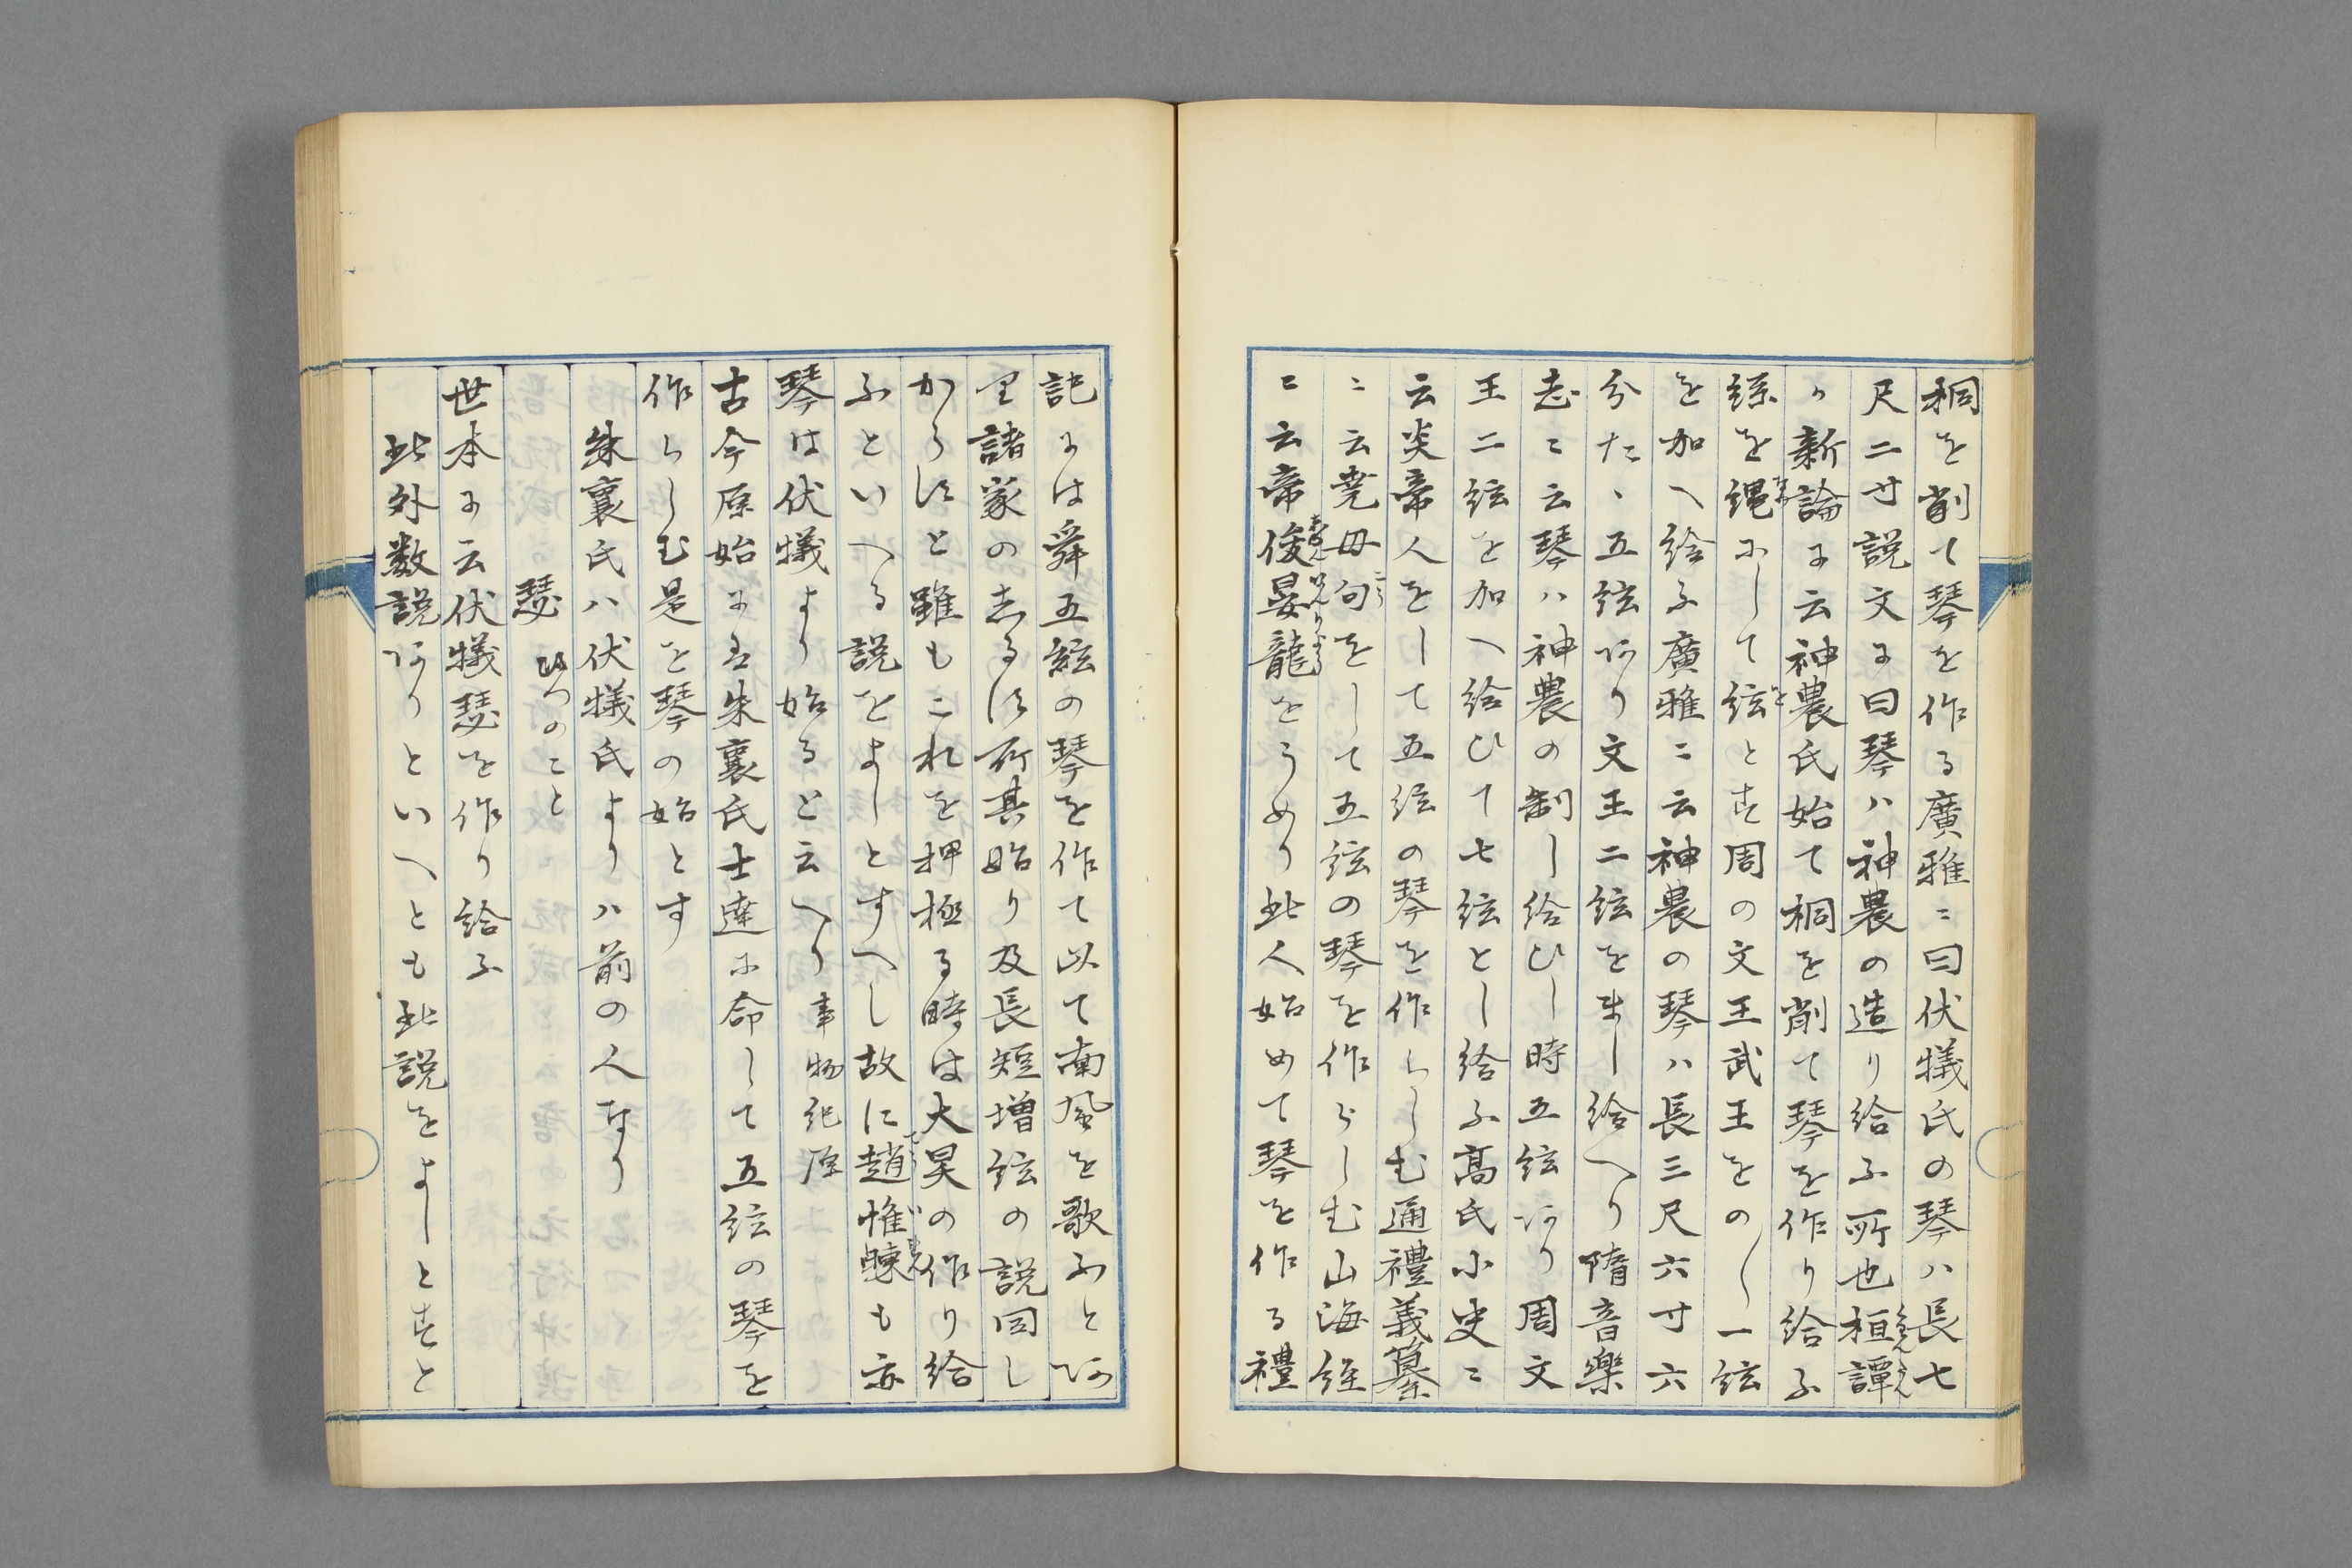 桐を削て琴を作る廣雅ニ曰伏犧氏の琴ハ長七
尺二寸説文に曰琴ハ神農の造り給ふ所也桓譚
か新論に云神農氏始て桐を削て琴を作り給ふ
絲を縄にして絃とす周の文王武王をの〳〵一絃
を加へ給ふ廣雅ニ云神農の琴ハ長三尺六寸六
分たゝ五絃あり文王二絃をまし給へり隋音樂
志ニ云琴ハ神農の制し給ひし時五絃あり周文
王二絃を加へ給ひて七絃とし給ふ高氏小史ニ
云炎帝人をして五絃の琴を作らしむ通禮義纂
ニ云堯母句をして五絃の琴を作らしむ山海経
ニ云帝俊晏龍をうめり此人始めて琴を作る禮
記には舜五絃の琴を作て以て南風を歌ふとあ
り諸家のしるす所其始り及長短増絃の説同し
からすと雖もこれを押極る時は大昊の作り給
ふといへる説をよしとすへし故に趙惟暕も亦
琴は伏犧より始ると云へり事物紀原
古今原始に云朱襄氏士達に命して五絃の琴を
作らしむ是を琴の始とす
朱襄氏ハ伏犧氏よりハ前の人なり
瑟 ひつのこと
世本に云伏犧瑟を作り給ふ
此外数説ありといへとも此説をよしとすと